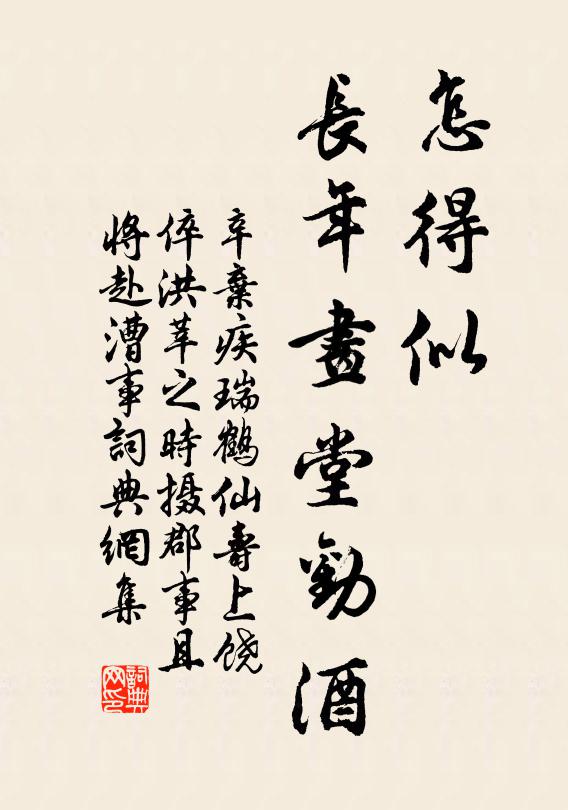 怎得似
長年畫堂勸酒
辛棄疾瑞鶴仙壽上饶
倅洪莘之時摄郡事且
將赴漕事詞典網集
詞典网印